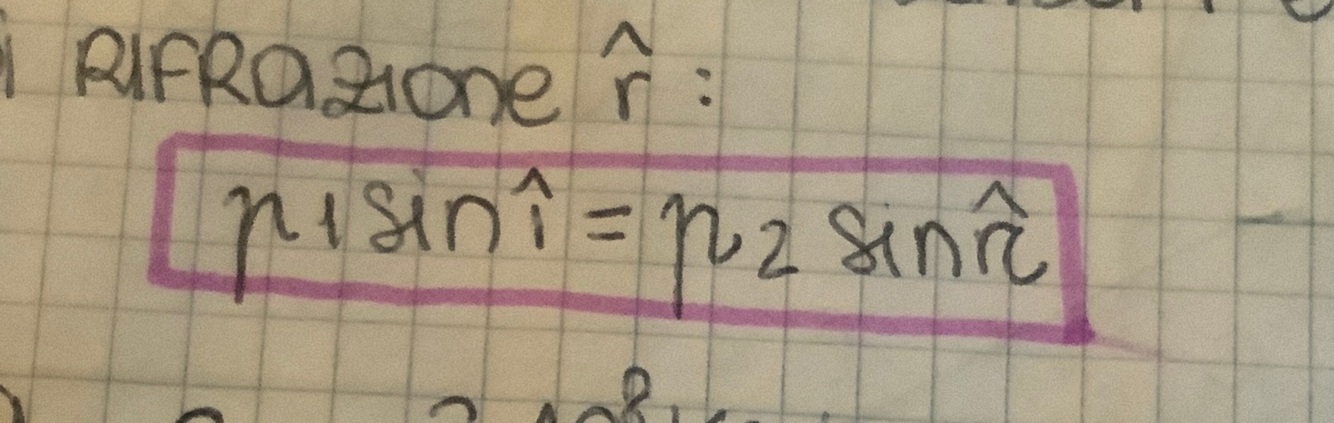 i RIFRAZIONE r̂ :
n1 sin î = n2 sin r̂